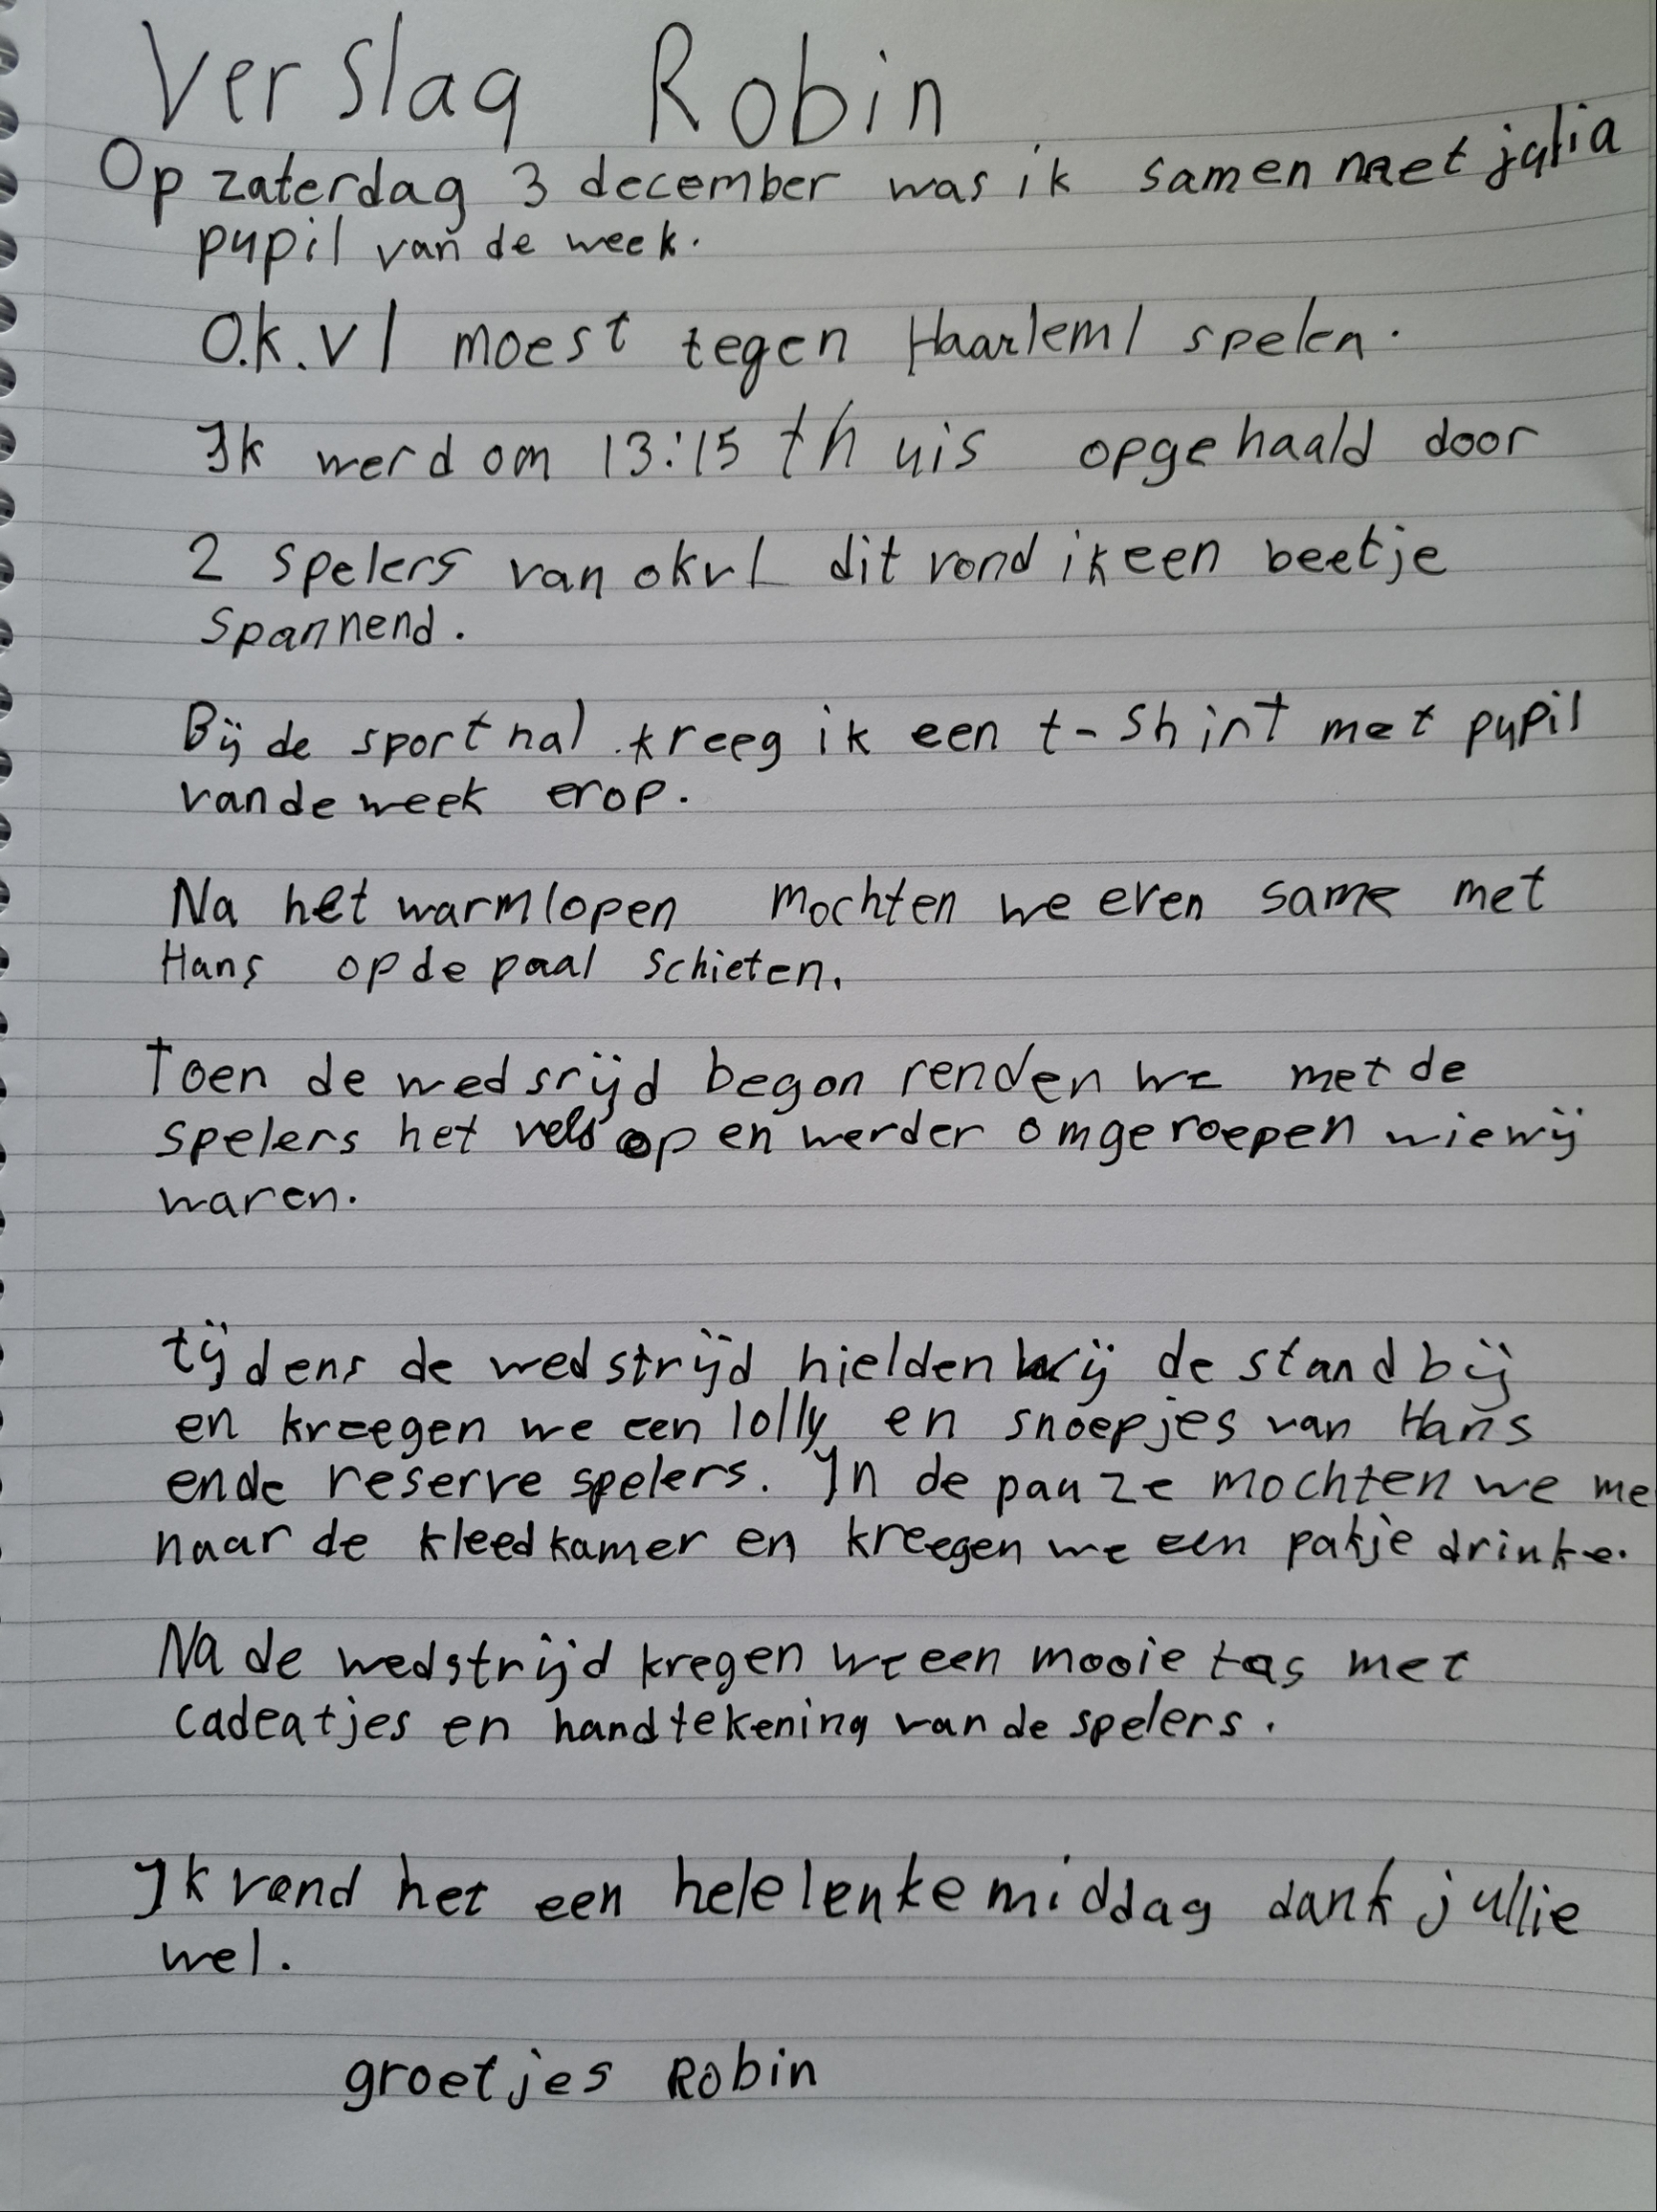 Verslag Robin
Op zaterdag 3 december was ik samen met julia
pupil van de week.
O.k.v 1 moest tegen Haarlem 1 spelen.
Ik werd om 13:15 thuis opgehaald door
2 spelers van okv 1 dit vond ik een beetje
spannend.
Bij de sporthal kreeg ik een t-shirt met pupil
van de week erop.
Na het warmlopen mochten we even same met
Hans op de paal schieten.
Toen de wedsrijd begon renden we met de
spelers het veld op en werder omgeroepen wie wij
waren.
tijdens de wedstrijd hielden wij de stand bij
en kreegen we een lolly en snoepjes van Hans
en de reserve spelers. In de pauze mochten we me
naar de kleedkamer en kreegen we een pakje drinke.
Na de wedstrijd kregen we een mooie tas met
cadeatjes en handtekening van de spelers.
Ik vond het een hele lenke middag dank jullie
wel.
groetjes Robin